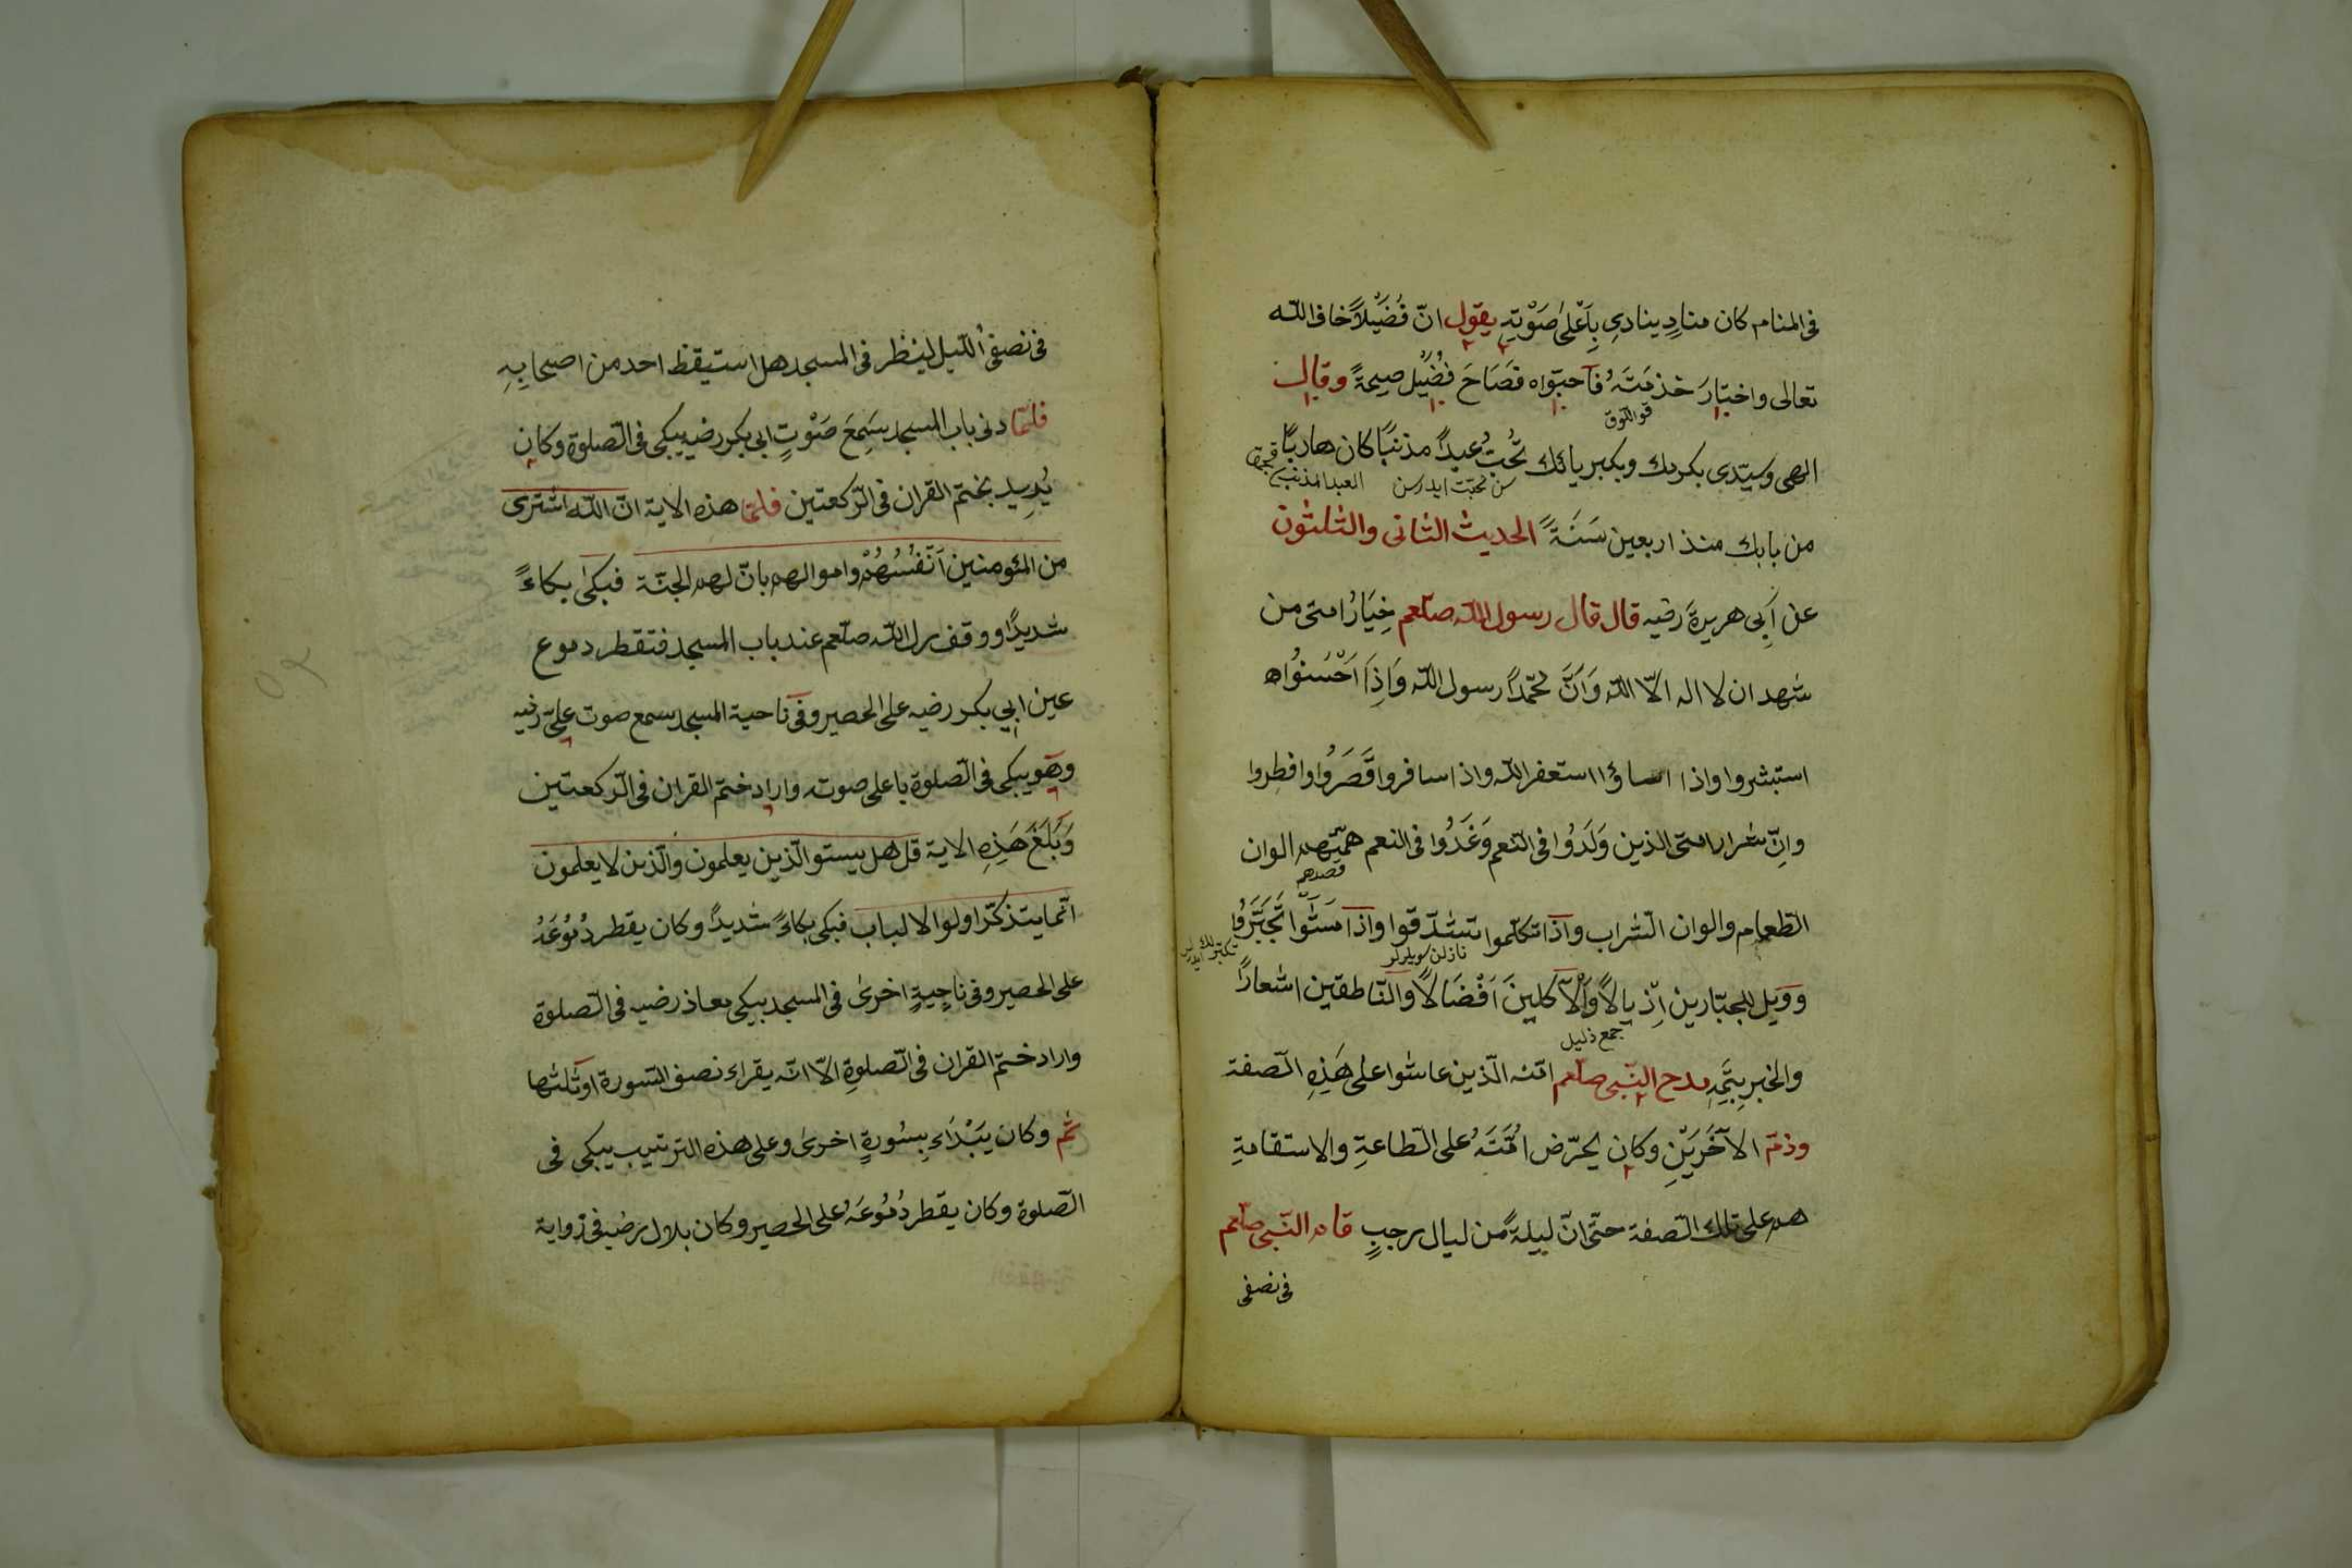 فى المنام كان منادٍ ينادى بِاَعْلىٰ صَوْتِهِ يقول انّ فُضَيْلاً خاف اللّه
تعالى واختارَ خذمَتَهُ فآحبّواه فصَاحَ فُضَيْل صيحةً وقال
قو اللّوق
الهى وسيّدى بكرمك وبكبريائك تُحِبُّ عبداً مذنبًا كان هاربًا
سن محبّت ايدرسن
العبد المذنب
من بابك منذ اربعين سَنَةً الحديث الثانى والثلثون
عن اَبِى هريرةَ رضيه قال قال رسول اللّه صلّعم خِيَارُ امتى من
شهد ان لا اله الاّ اللّه وَاَنَّ محمّداً رسول اللّه وَاِذَا اَحْسَنُوا
استبشروا واذا اساؤا استغفر اللّه واذا سافروا قَصَرُوا وافطروا
وانّ شرار امتى الذين وَلَدُوا فى النّعم وَغَدُوا فى النعم همّتهم الوان
قصدهم
الطّعام والوان الشّراب واذا تكلّموا تشدّقوا واذا مَشَوْا تَجَبَّرُوا
نازلن سويلرلر
وويل للجبّارين اِذيالاً وَاْلآكلينَ اَفْضَالاً والنّاطقين اشعاراً
جمع ذليل
والخبر بِتَمِّهِ مدح النّبى صلّعم امّته الّذين عاشوا على هَذِهِ الصّفة
وذمّ الآخَرِيَنْ وكان يحرّض اُمَّتَهُ على الطّاعةِ والاستقامةِ
هم على تلك الصّفة حتّى انّ ليلةً من ليال رجبٍ قام النّبى صلّعم
فى نصف
فى نصف اللّيل لينظر فى المسجد هل استيقظ احد من اصحابِهِ
فلمّا دنى باب المسجد سَمِعَ صَوْتِ ابى بكر رضيه يبكى فى الصّلوة وكان
يُرِيد بختم القران فى الرّكعتين فلمّا هذه الاية انّ اللّه اشترى
من المئومنين اَنْفُسُهُمْ واموالهم بانّ لهم الجنّة فبكىٰ بكاءً
شديدًا ووقف رسول اللّه صلّعم عند باب المسجد فتقطر دموع
عين ابى بكر رضيه على الحصير وفى ناحية المسجد سمع صوت علىّ رضيه
وهو يبكى فى الصّلوة باعلى صوته واراد ختم القران فى الرّكعتين
وَبَلَغَ هَذِهِ الاية قل هل يستو الّذين يعلمون والّذين لا يعلمون
انّما يتذكّر اولوا الالباب فبكى بكاءً شديدًا وكان يقطر دُمُوعَهُ
على الحصير وفى ناحِيةٍ اخرىٰ فى المسجد يبكى معاذ رضيه فى الصّلوة
واراد ختم القران فى الصّلوةِ الاّ انّه يقراء نصف السّورة او ثلثها
ثم وكان يَبْدَاءِ بِسُورةٍ اخرىٰ وعلى هذه الترتيب يبكى فى
الصّلوة وكان يقطر دُمُوعَهُ على الحصير وكان بلال رضيه فى زواية